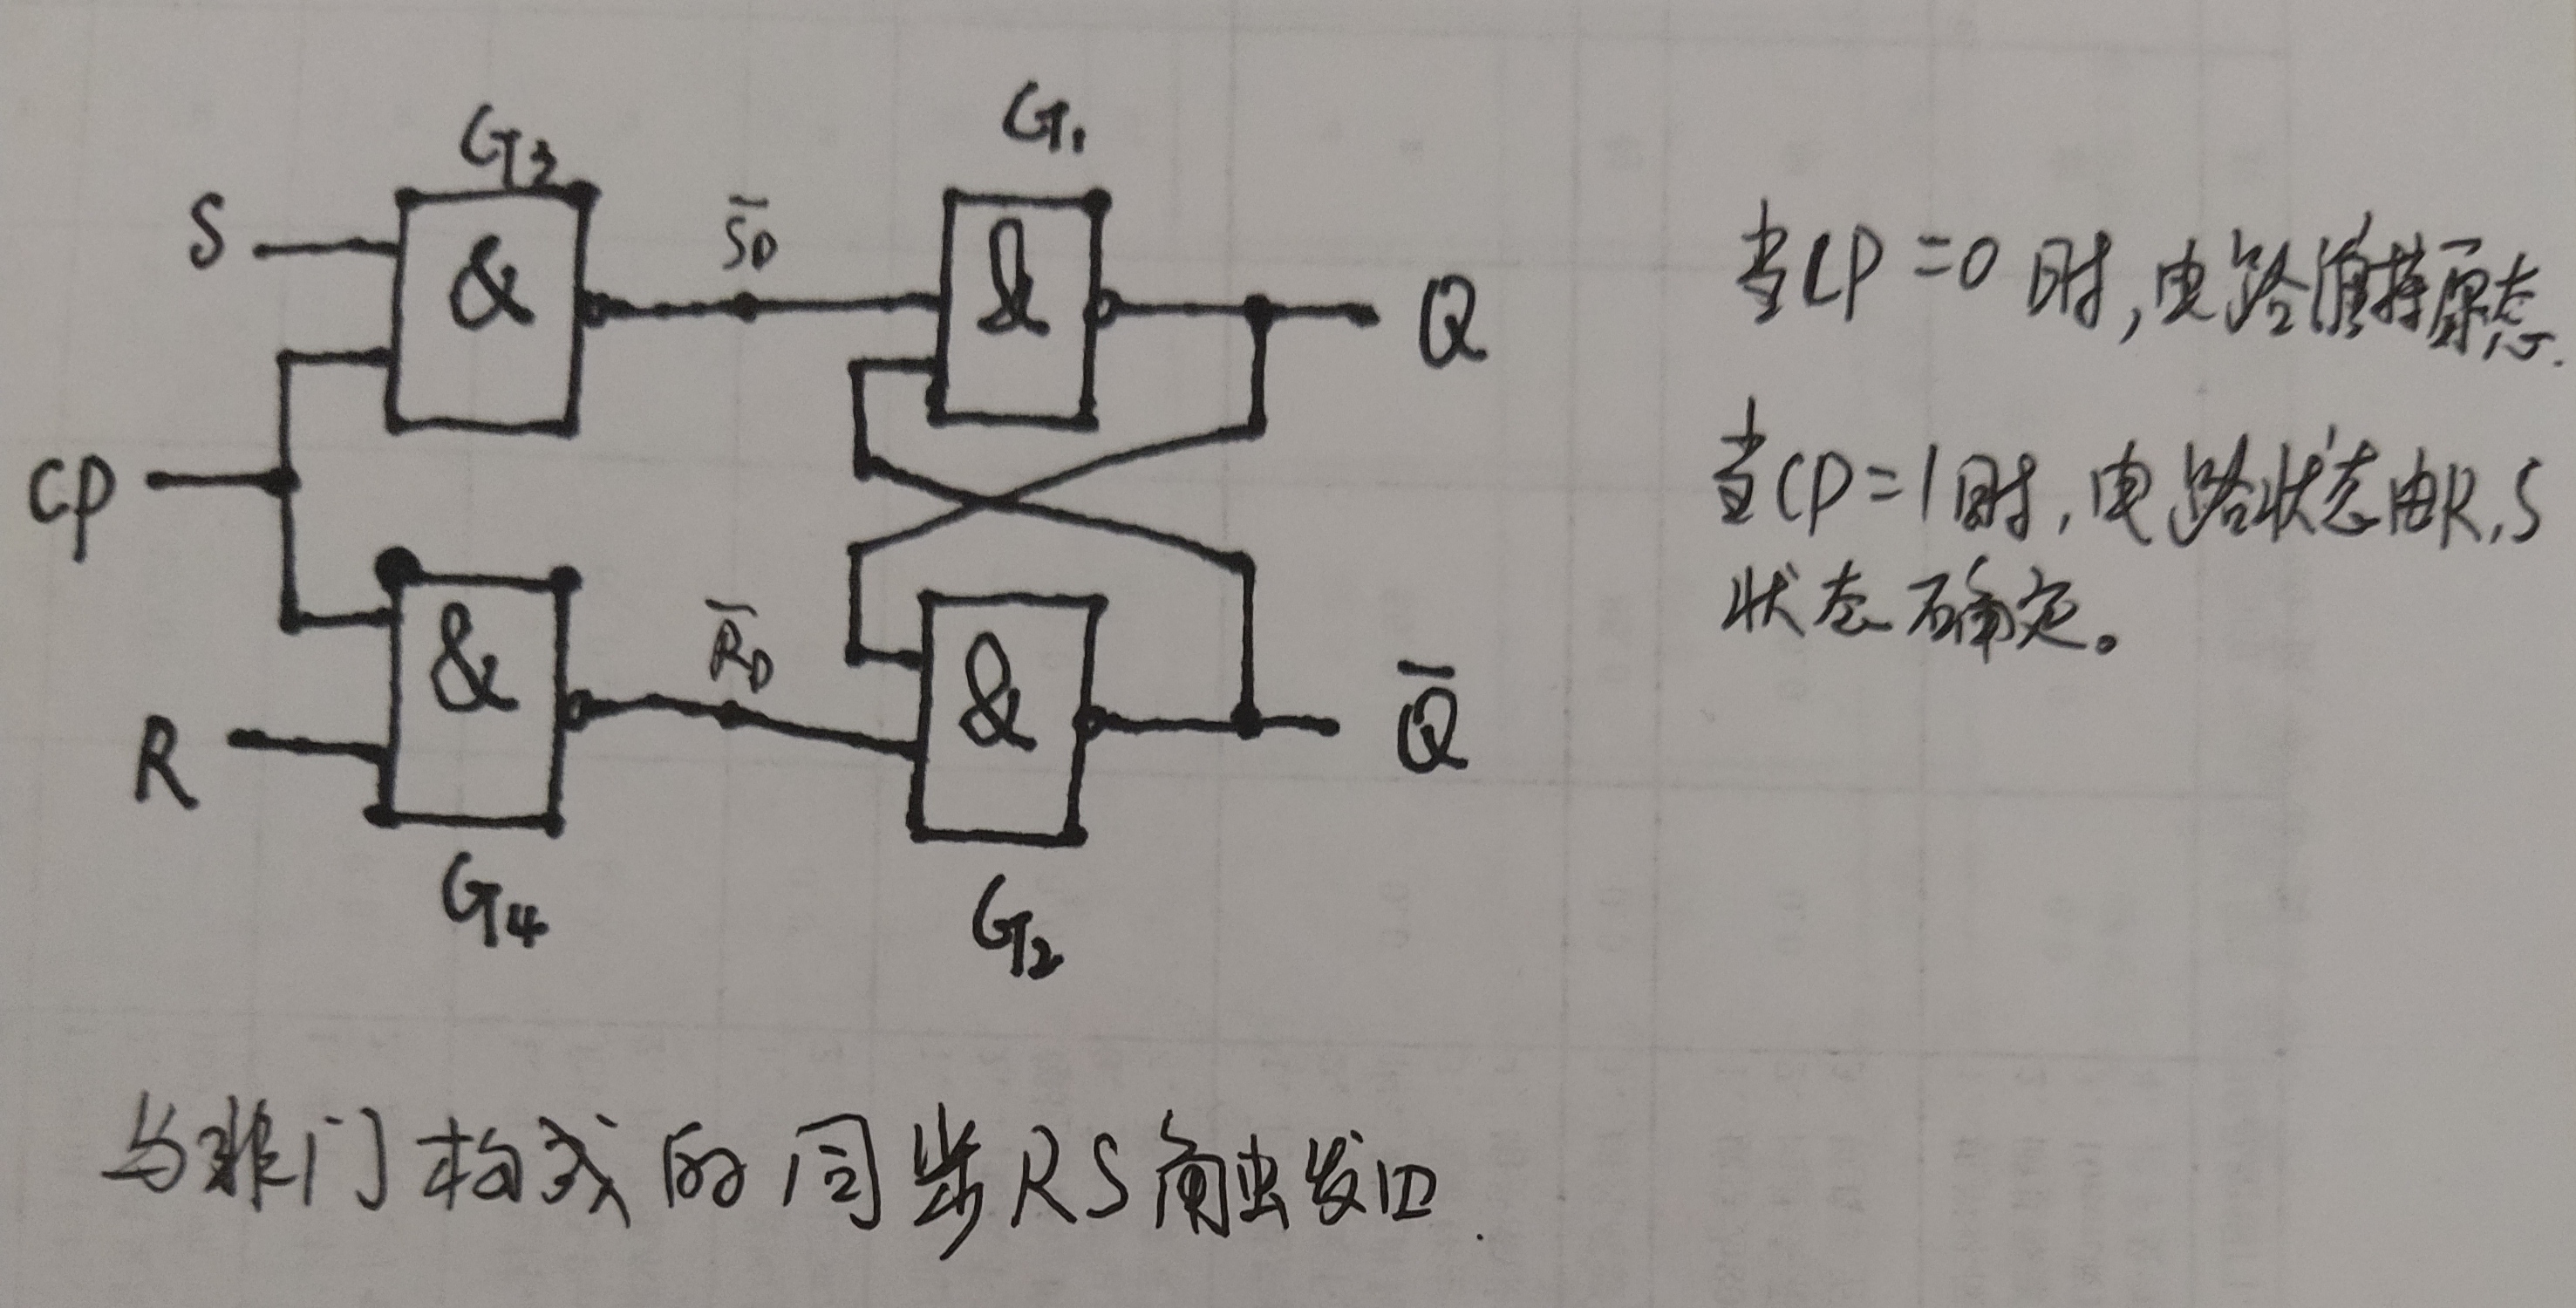 G3
G1
S
&
S̅D
&
Q
CP
&
R̅D
&
Q̅
R
G4
G2
当CP=0时,电路维持原态.
当CP=1时,电路状态由R,S
状态确定。
与非门构成的同步RS触发四.